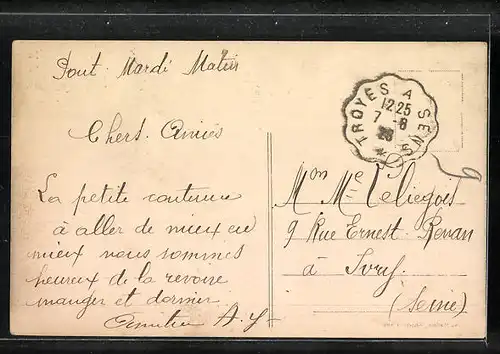 Pont Mardi Matin
Chers Amies
La petite continue
à aller de mieux en
mieux nous sommes
heureux de la revoire
manger et dormir
A. J
TROYES A SENS
12 25
7 - 8
Mon Me
9 Rue Ernest Renan
à Ivry
(Seine)